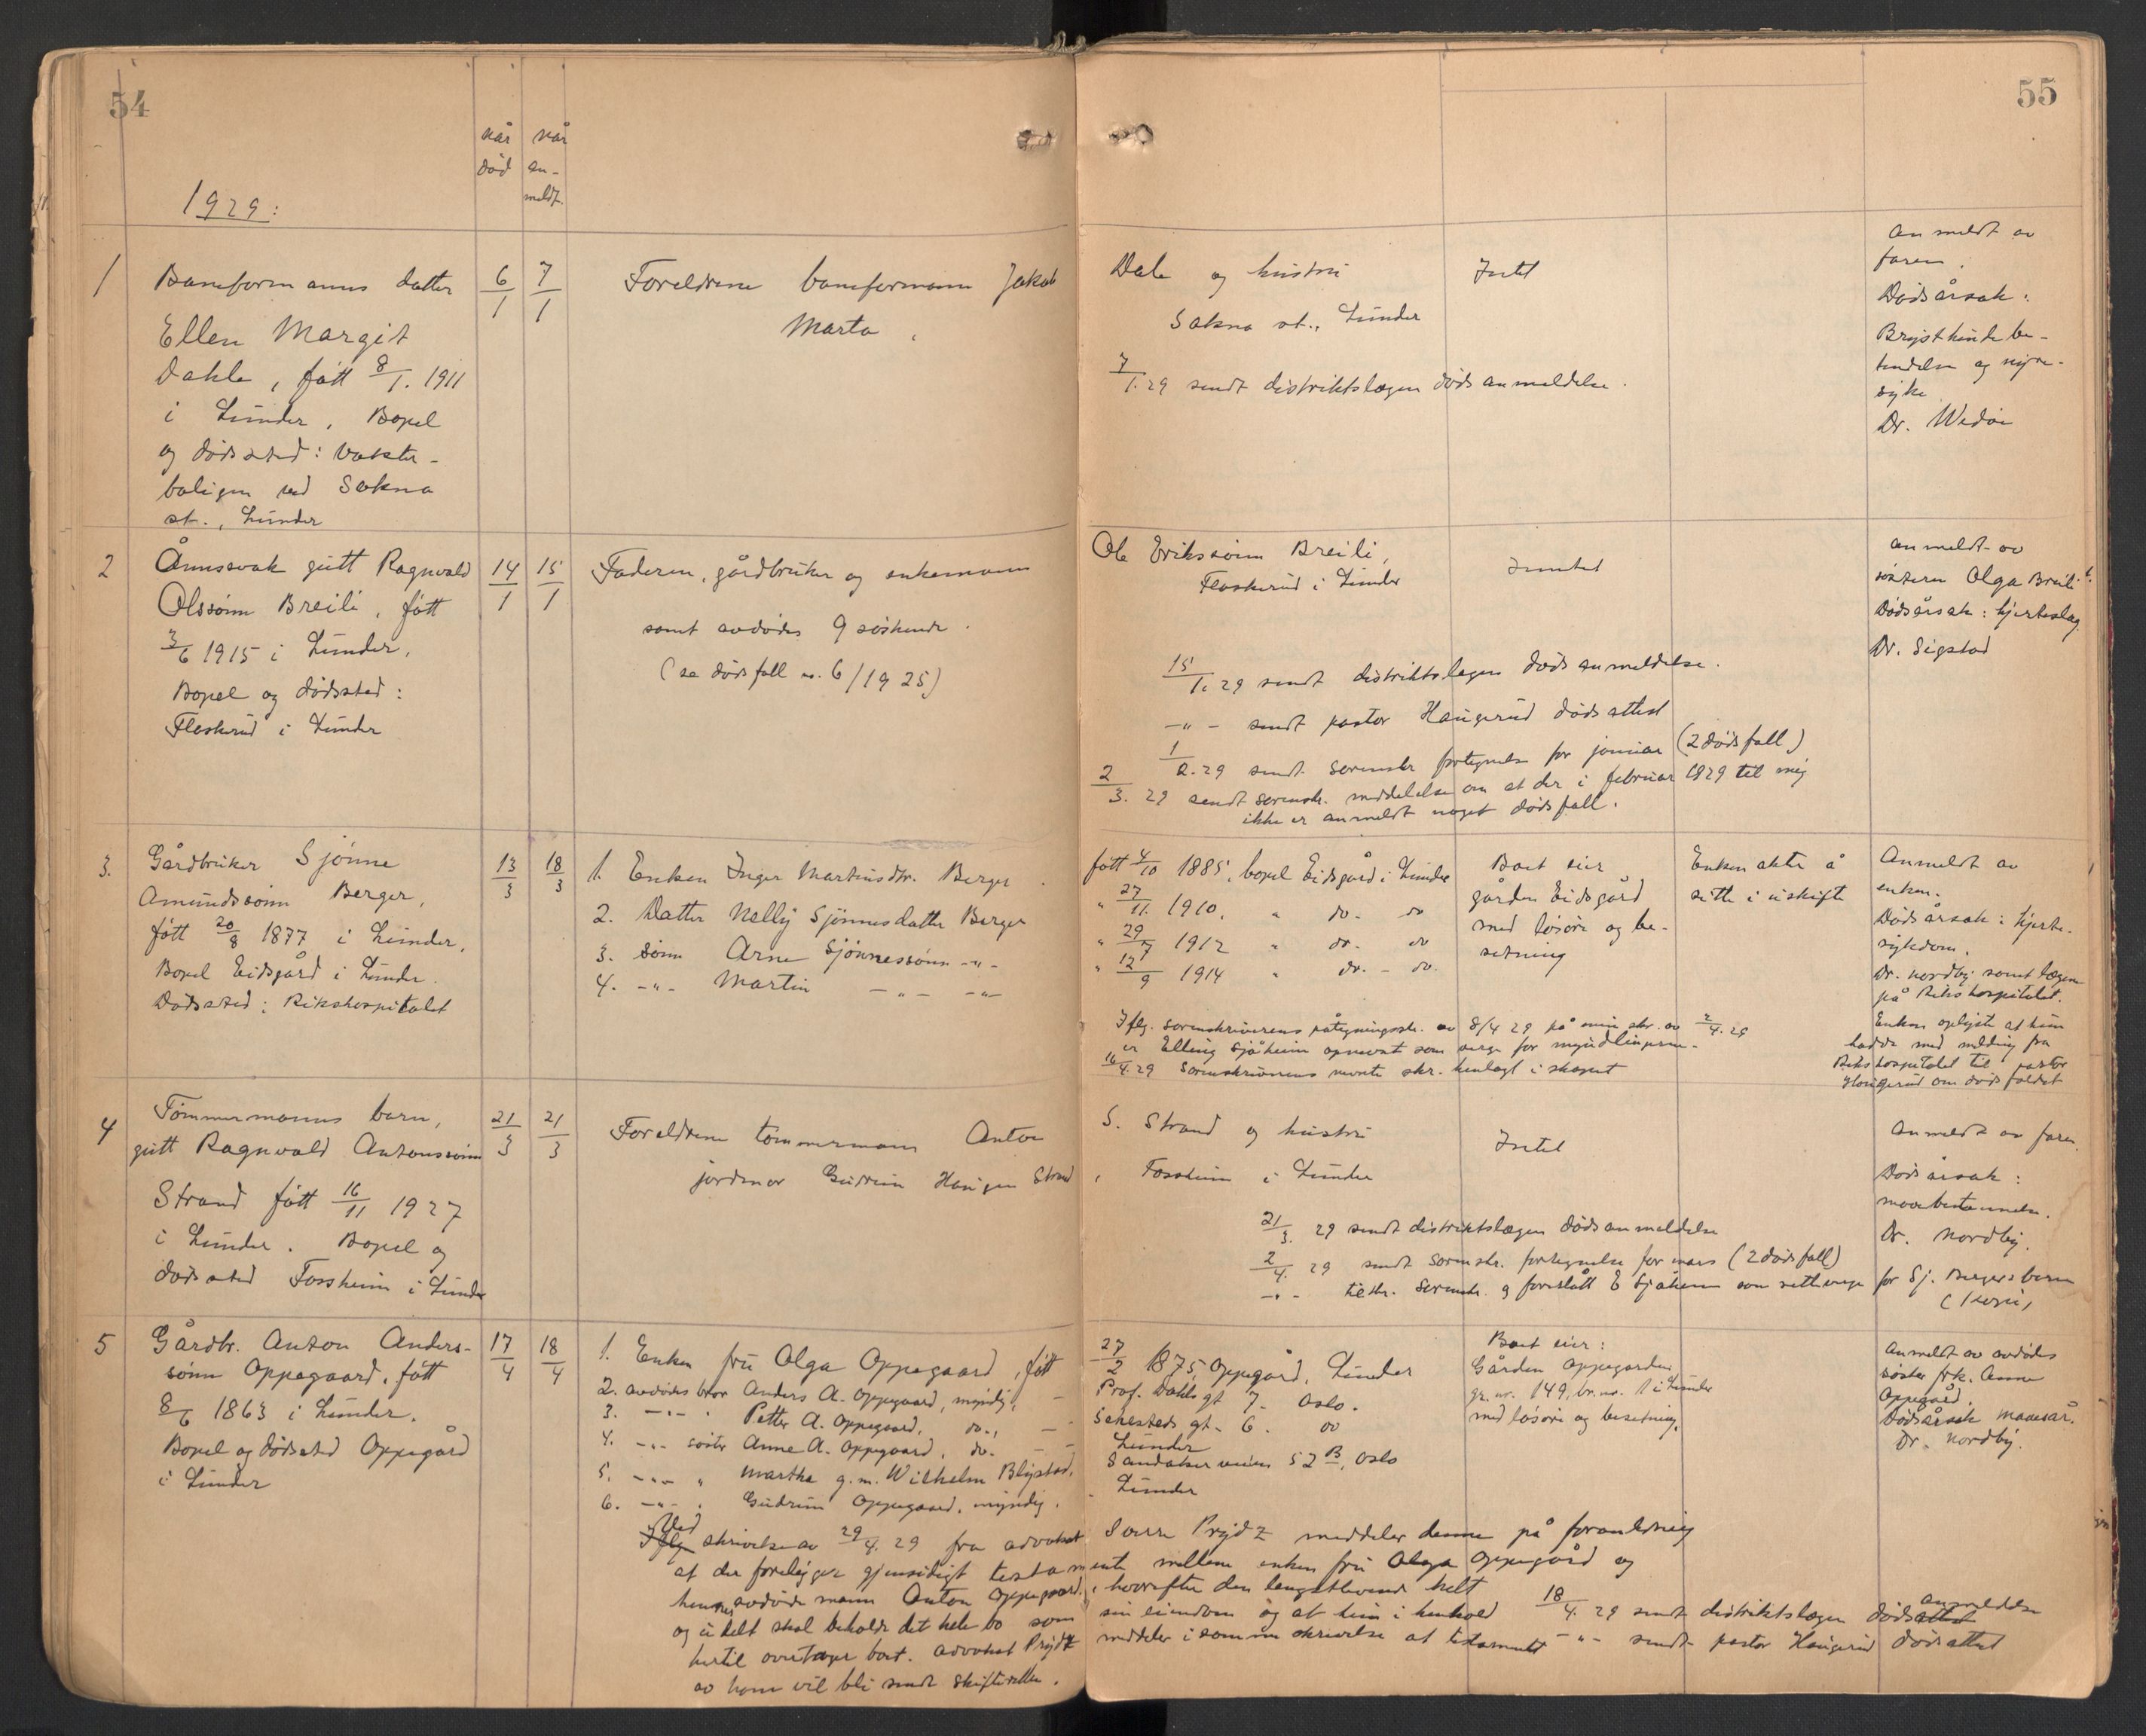 54
når
død
når
an-
meldt.
1929:
1
Baneformanns datter
Ellen Margit
Dahle, født 8/1. 1911
i Lunder, Bopel
og dødssted: Vokter-
boligen ved Sokna
st., Lunder
6/1
7/1
Foreldrene baneformann Jakob
Marta
2
Åndssvak gutt Ragnvald
Olssønn Breili, født
3/6 1915 i Lunder.
Bopel og dødssted:
Flaskerud i Lunder
14/1
15/1
Faderen, gårdbruker og enkemann
samt avdødes 9 søskende.
(se dødsfall nr. 6/1925)
3.
Gårdbruker Sjønne
Amundssønn Berger,
født 20/8 1877 i Lunder.
Bopel Eidsgård i Lunder.
Dødssted: Rikshospitalet
13/3
18/3
1. Enken Inger Martinsdtr. Berger
2. Datter Nelly Sjønnesdatter Berger
3. sønn Arne Sjønnessønn -"-
4. -"- Martin -"- -"-
4
Tømmermanns barn,
gutt Ragnvald Antonssønn
Strand født 16/11 1927
i Lunder. Bopel og
dødssted Fossheim i Lunder
21/3
21/3
Foreldrene tømmermann Anton
jordmor Gudrun Haugen Strand
5
Gårdbr. Anton Anders-
sønn Oppegaard, født
8/6 1863 i Lunder.
Bopel og dødssted Oppegård
i Lunder
17/4
18/4
1. Enken fru Olga Oppegaard, født
2. avdødes bror Anders A. Oppegaard, myndig,
3. -"- " Petter A. Oppegaard, do.,
4. -"- søster Anne A. Oppegaard, do.
5. -"- " Martha g.m. Wilhelm Blystad,
6. -"- " Gudrun Oppegaard, myndig,
Ved
Iflg skrivelse av 29/4. 29 fra advokat
at der foreligger gjensidigt testam
hennes avdøde mann Anton Oppegaard,
og udelt skal beholde det hele bo som
hertil overtager boet. Advokat Prydz
av ham vil bli sendt skifteretten.
55
Dale og hustru
Sokna st., Lunder
Intet
7/1. 29 sendt distriktslægen dødsanmeldelse.
Anmeldt av
faren.
Dødsårsak:
Brysthinnebe-
tendelse og nyre-
syke
Dr. Wedøe
Ole Erikssønn Breili,
Flaskerud i Lunder
Inntet
15/1. 29 sendt distriktslægen dødsanmeldelse.
-"- sendt pastor Haugerud dødsattest
1/2. 29 sendt sorenskr. fortegnelse for januar (2 dødsfall)
2/3. 29 sendt sorenskr. meddelelse om at der i februar 1929 til mig
ikke er anmeldt noget dødsfall.
Anmeldt av
søsteren Olga Breili.
Dødsårsak: hjerteslag
Dr. Sigstad
født 4/10 1885, bopel Eidsgård i Lunder
" 27/11. 1910, " do. do
" 29/7 1912 " do. do
" 12/9 1914 " do. - do.
Boet eier
gården Eidsgård
med løsøre og be-
setning
Enken akter å
sitte i uskifte
Anmeldt av
enken.
Dødsårsak: hjerte-
sykdom.
Dr. Nordby samt lægene
på Rikshospitalet.
Enken oplyste at hun
hadde med melding fra
Rikshospitalet til pastor
Haugerud om dødsfaldet
Iflg. sorenskriverens påtegningsskr. av 8/4 29 på min skr. av 2/4. 29
er Elling Sjåheim opnevnt som verge for myndlingene.
16/4. 29 Sorenskriverens nevnte skr. henlagt i skapet
S. Strand og hustru
, Fossheim i Lunder
Intet
21/3. 29 sendt distriktslægen dødsanmeldelse
2/4. 29 sendt sorenskr. fortegnelse for mars (2 dødsfall)
-"- tilskr. sorenskr. og foreslått E Sjåheim som setteverge for Sj. Bergers barn
(kopi)
Anmeldt av faren.
Dødsårsak:
Dr. Nordby.
27/2 1875, Oppegård, Lunder
Prof. Dahls gt 7. Oslo.
Sehesteds gt. 6. do
Lunder
Sandakerveien 52 B, Oslo
Lunder
Boet eier:
Gården Oppegorden
gr. nr. 149, br. nr. 1 i Lunder
med løsøre og besetning.
Anmeldt av avdødes
søster frk. Anne
Oppegård.
Dødsårsak mavesår.
Dr. Nordby.
Prydz meddeler denne på foranledning
ente mellem enken fru Olga Oppegård og
, hvorefter den lengstlevende helt
sin eiendom og at hun i henhold
meddeler i samme skrivelse at testamentet
18/4. 29 sendt distriktslægen dødsattest anmeldelse
-"- sendt pastor Haugerud dødsattest